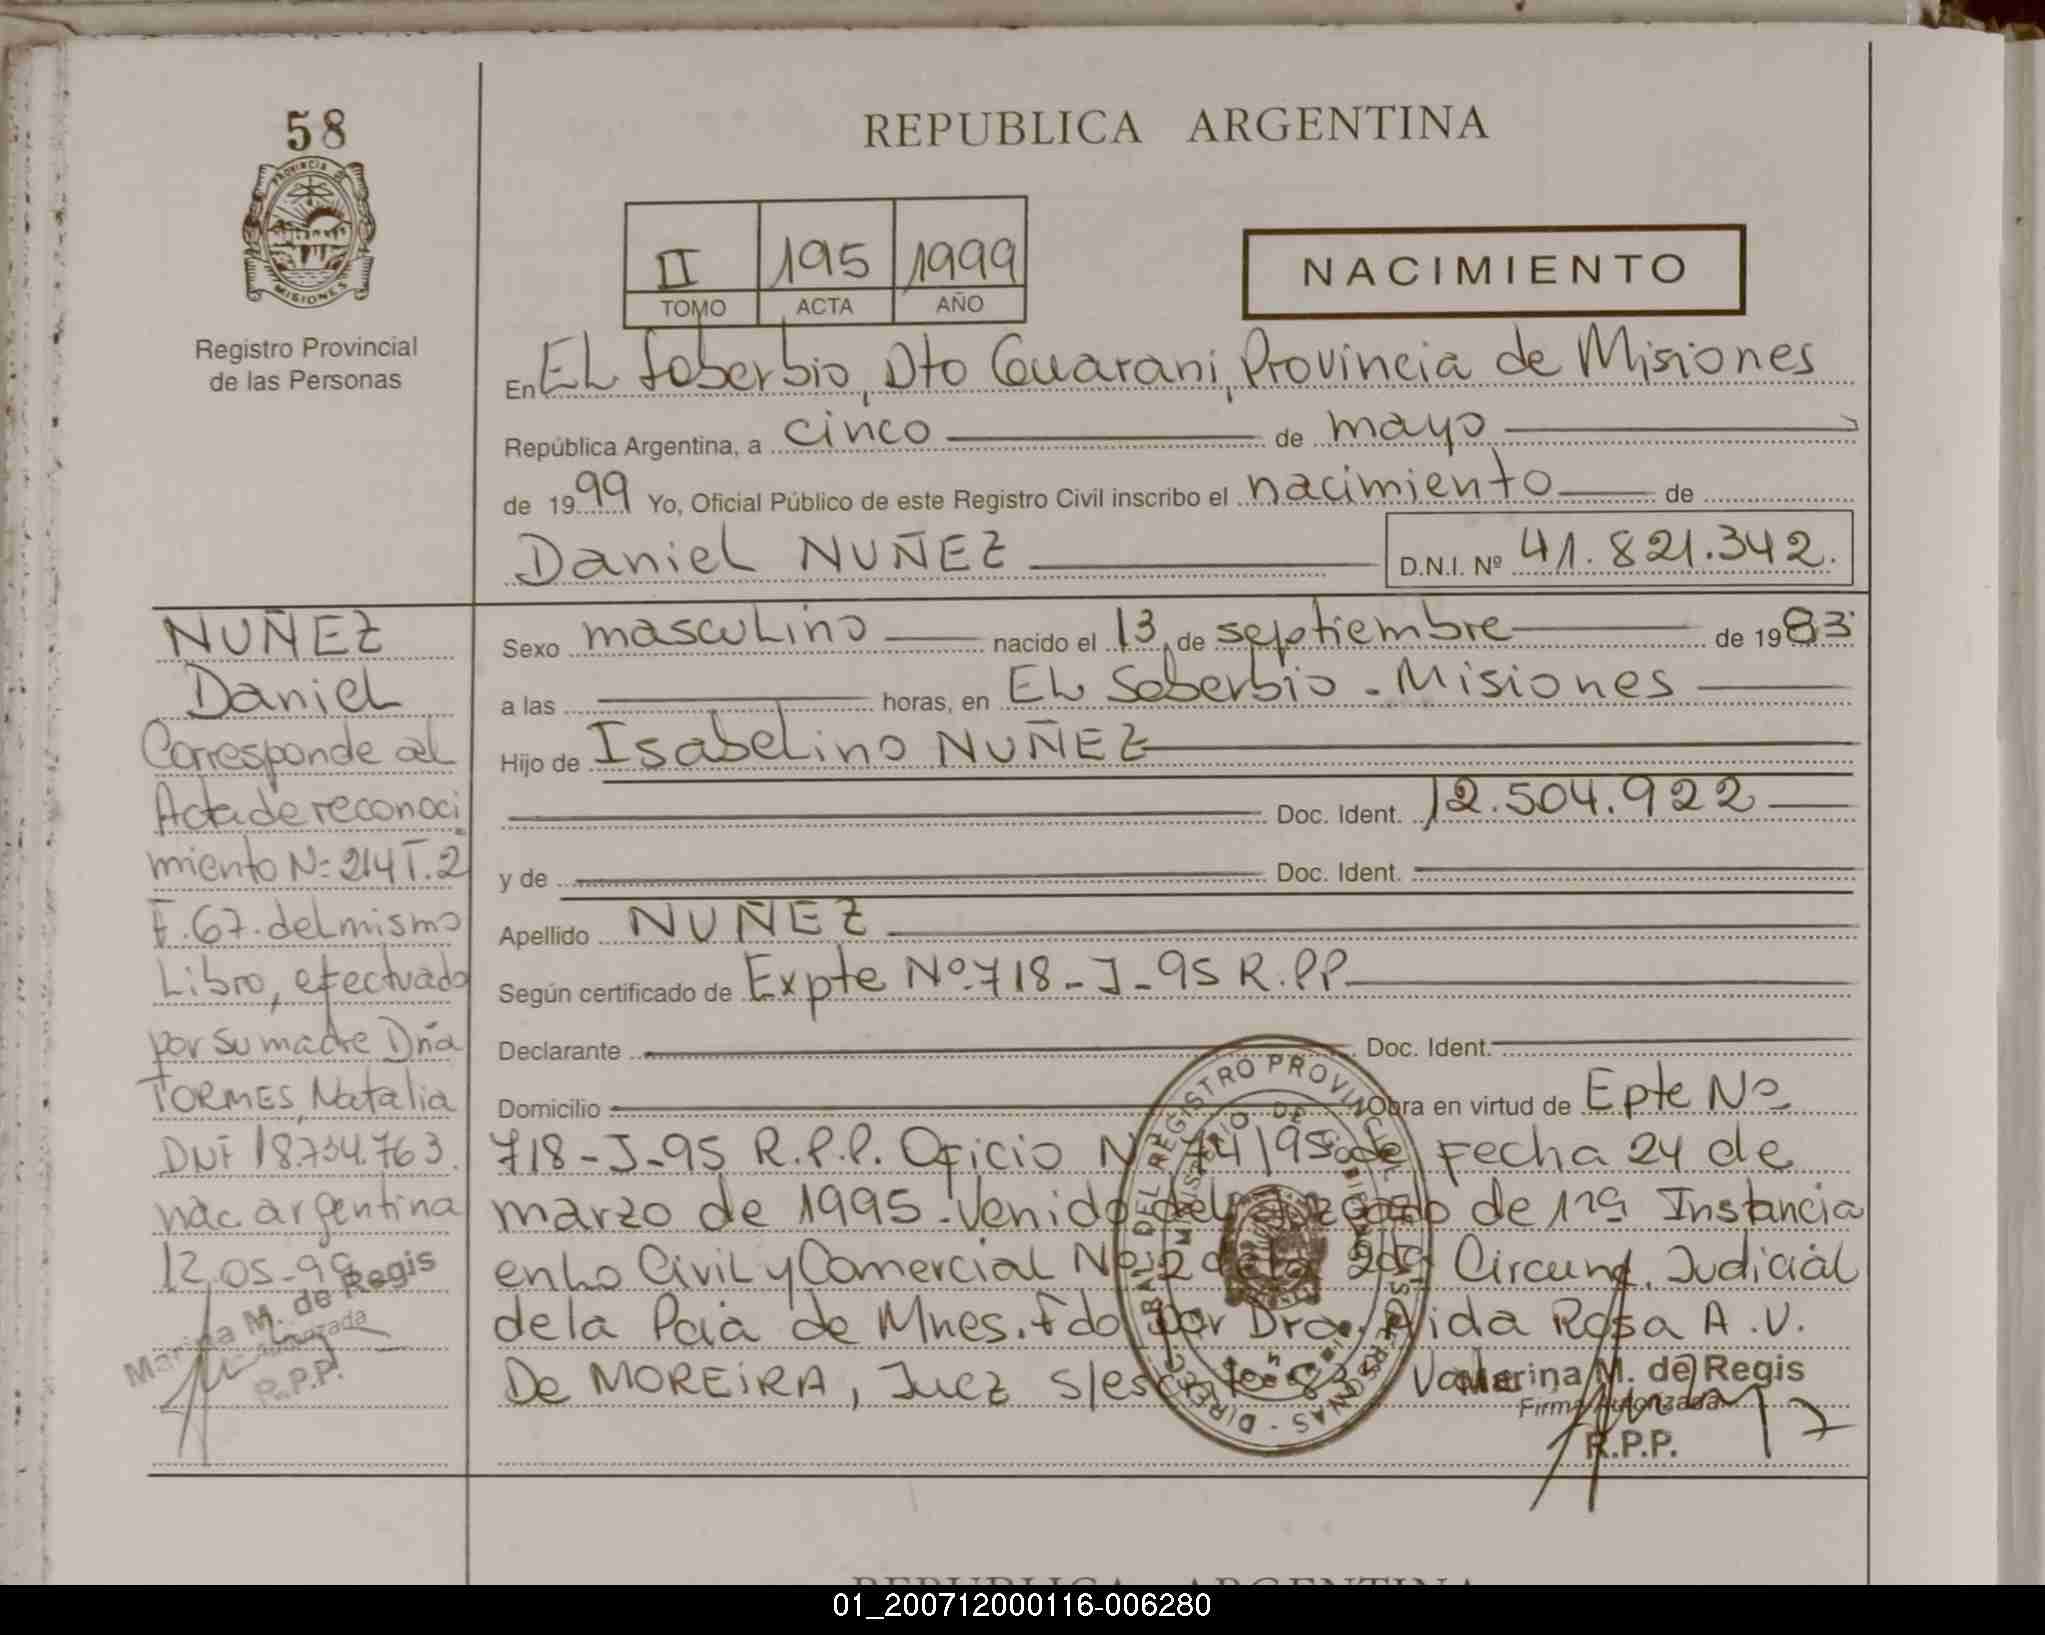 58
PROVINCIA DE
MISIONES
Registro Provincial
de las Personas
REPUBLICA ARGENTINA
II 195 1999
TOMO ACTA AÑO
NACIMIENTO
En EL Soberbio, Dto Guarani, Provincia de Misiones
República Argentina, a cinco de mayo
de 1999 Yo, Oficial Público de este Registro Civil inscribo el nacimiento de
Daniel NUÑEZ D.N.I. Nº 41.821.342.
Sexo masculino nacido el 13 de septiembre de 1983
a las horas, en EL Soberbio - Misiones
Hijo de Isabelino NUÑEZ
Doc. Ident. 12.504.922
y de Doc. Ident.
Apellido NUÑEZ
Según certificado de Expte Nº 718-J-95 R.PP
Declarante Doc. Ident.
Domicilio Obra en virtud de Epte Nº
718-J-95 R.P.P. Oficio Nº 74/95 de Fecha 24 de
marzo de 1995. Venido del Juzgado de 1ra Instancia
en Lo Civil y Comercial Nº 2 de la 2da Circunc. Judicial
de la Pcia de Mnes. Fdo por Dra. Aida Rosa A. V.
De MOREIRA, Juez s/es
Marina M. de Regis
Firma Autorizada
R.P.P.
NUÑEZ
Daniel
Corresponde al
Acta de reconoci
miento Nº 214 T.2
F.67. del mismo
Libro, efectuado
por su madre Dña
TORMES, Natalia
DNI 18.734.763.
nac. argentina
12.05-99
Marina M. de Regis
Firma Autorizada
R.P.P.
REPUBLICA ARGENTINA
01_200712000116-006280